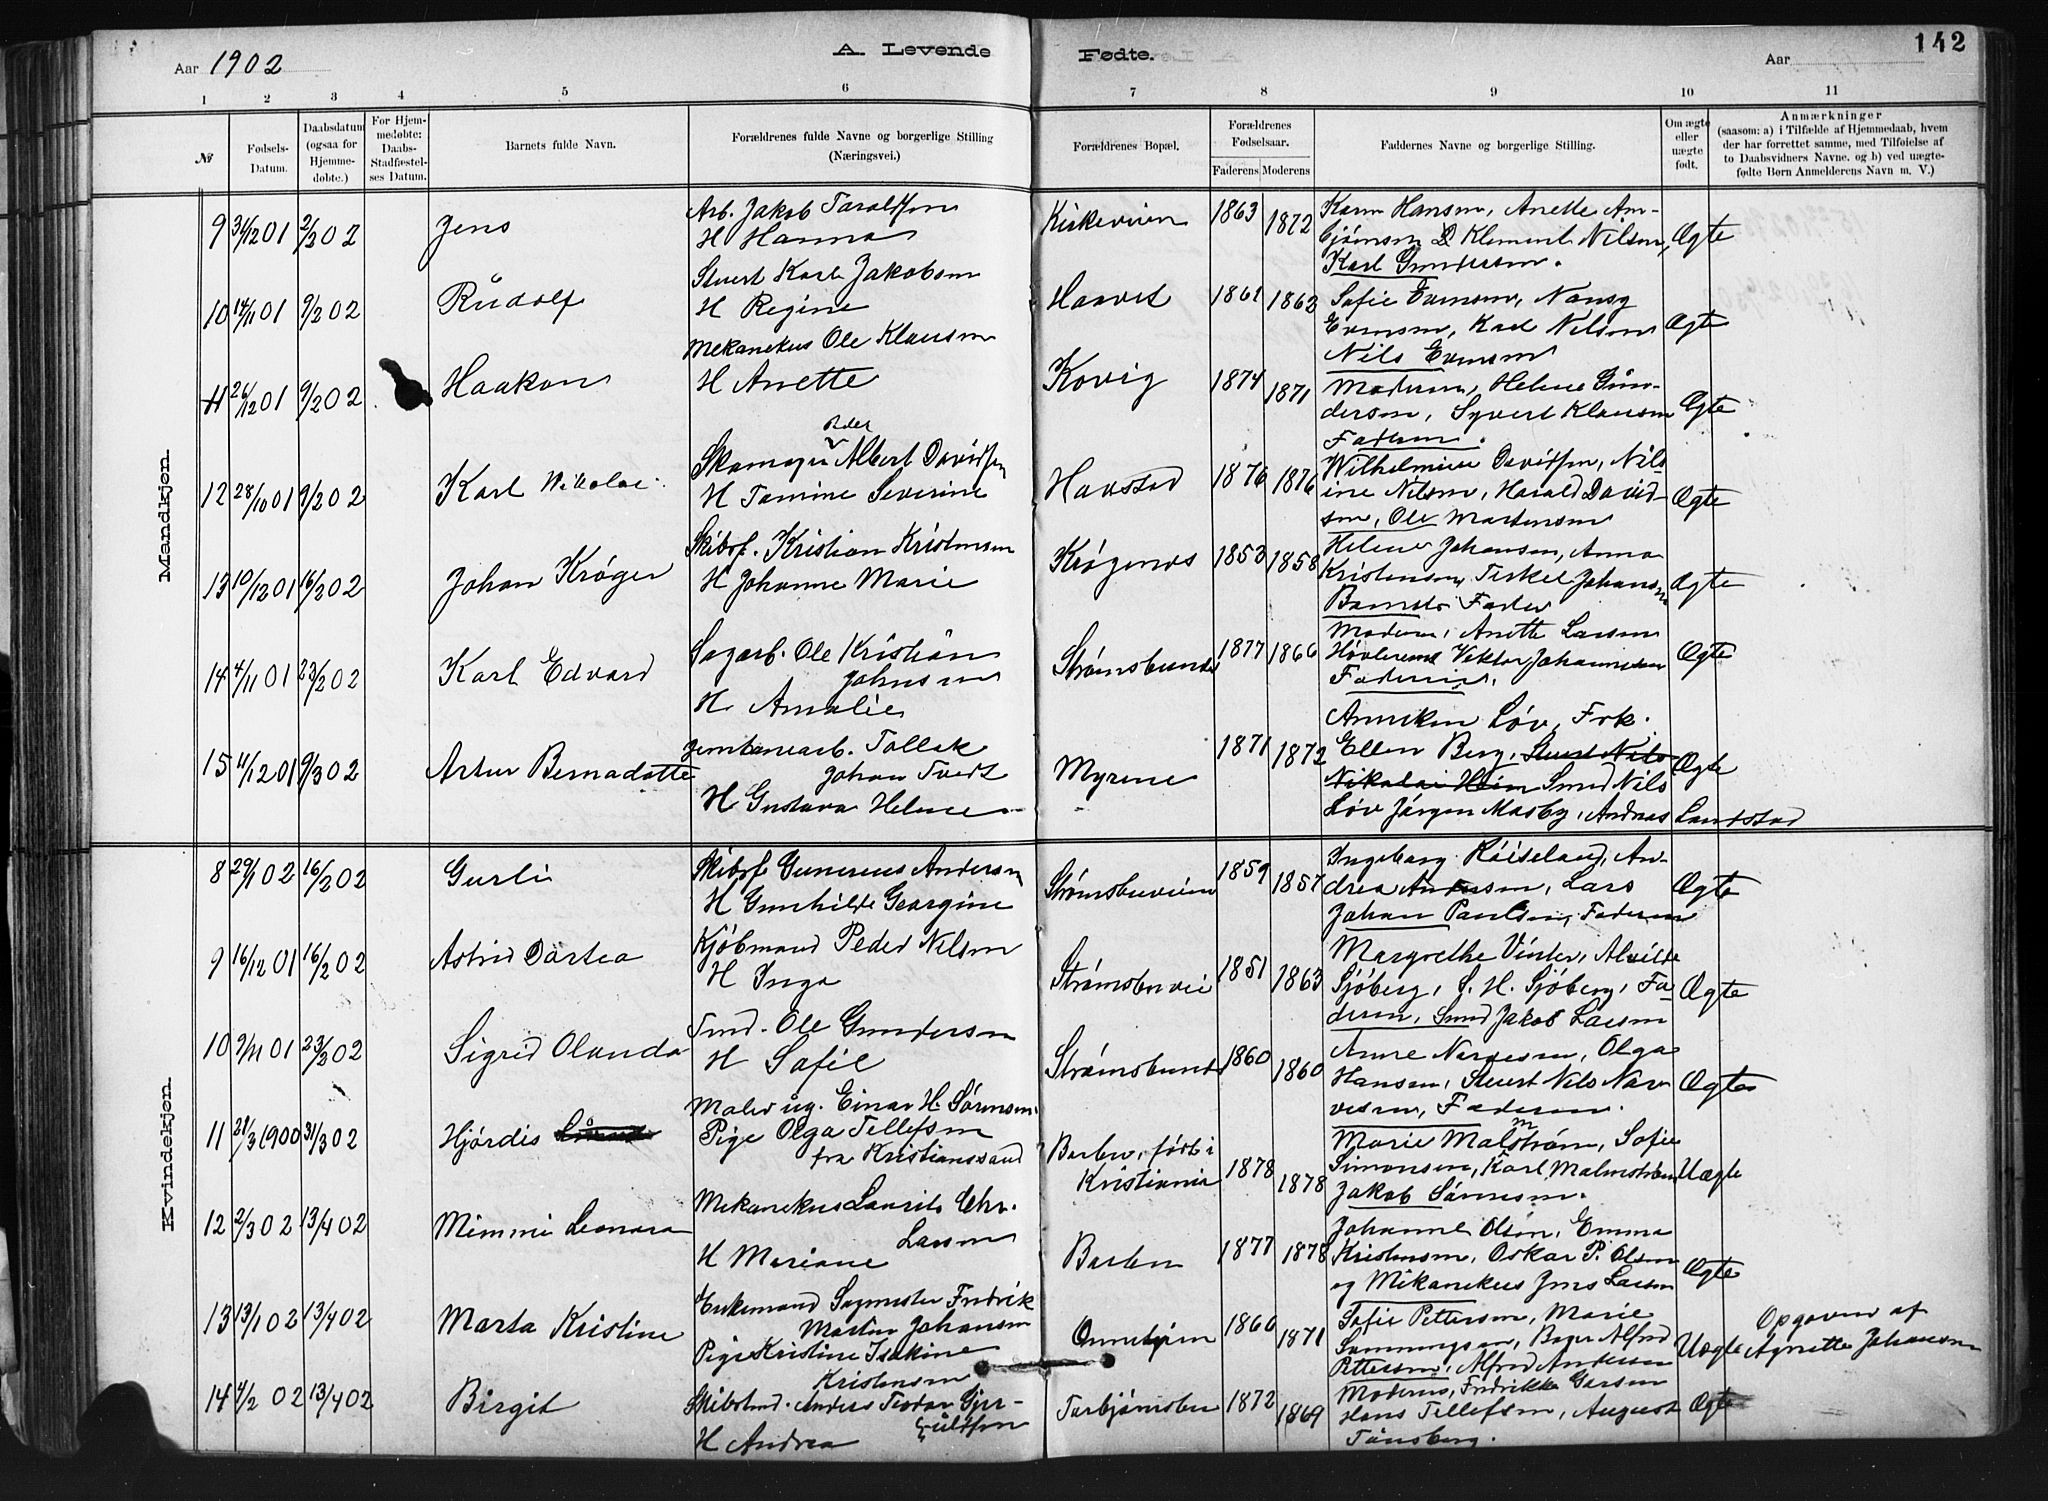 A. Levende Fødte.
142
Aar 1902
Aar
1 2 3 4 5 6 7 8 9 10 11
№
Fødsels-Datum.
Daabsdatum (ogsaa for Hjemmedøbte.)
For Hjemmedøbte: Daabs-Stadfæstelses Datum.
Barnets fulde Navn.
Forældrenes fulde Navne og borgerlige Stilling (Næringsvei.)
Forældrenes Bopæl.
Forældrenes Fødselsaar.
Faderens Moderens
Faddernes Navne og borgerlige Stilling.
Om ægte eller uægte født.
Anmærkninger
(saasom: a) i Tilfælde af Hjemmedaab, hvem
der har forrettet samme, med Tilføielse af
to Daabsvidners Navne. og b) ved uægte-
fødte Børn Anmelderens Navn m. V.)
Mandkjøn.
9 31/12 01 2/2 02 Jens
Arb. Jakob Taraldsen
H Hanna
Kirkeveien 1863 1872
Karen Hansen, Anette
Klement Nilsen,
Karl Gundersen.
Ægte
10 14/11 01 9/2 02 Rudolf
Stuert Karl Jakobsen
H Regine
1861 1862
Sofie Evensen, Nansy
Evensen, Karl Nilsen
Nils Evensen
Ægte
11 26/12 01 9/2 02 Haakon
Mekanikus Ole Klausen
H Anette
Kovig 1874 1871
Moderen, Helene Gun-
dersen, Syvert Klausen
Faderen.
Ægte
12 28/10 01 9/2 02 Karl Nikolai
Peder
Skomager Albert Davidsen
H Tomine Severine
Havstad 1876 1876
Wilhelmine Davidsen, Nil-
ine Nilsen, Harald David-
sen, Ole Martensen
Ægte
13 10/12 01 16/2 02 Johan Krøger
Skibsf. Kristian Kristensen
H Johanne Marie
Krøgenes 1853 1858
Helene Johansen, Anna
Kristensen, Terkel Johansen
Barnets Fader
Ægte
14 4/11 01 23/2 02 Karl Edvard
Sagarb. Ole Kristian
Johnsen
H Amalie
Strømsbunes 1877 1866
Moderen, Anette Larsen
Viktor Johannesen
Faderen.
Ægte
15 11/12 01 9/3 02 Artur Bernadotte
Jernbanearb. Tallak
Johan Tvedt
H Gustava Helene
Myrene 1871 1872
Anniken Løv, Frk.
Ellen Berg, Stuert Nils
Nikolai Heim Smed Nils
Løv Jørgen Masby, Andreas Landstad
Ægte
Kvindekjøn.
8 29/1 02 16/2 02 Gurli
Skibsf Gunerius Andersen
H Gunhilde Georgine
Strømsbuveien 1859 1857
Ingeborg Røiseland, An-
drea Andersen, Lars
Johan Paulsen, Faderen
Ægte
9 16/12 01 16/2 02 Astrid Dortea
Kjøbmand Peder Nilsen
H Inga
Strømsbuvei 1851 1863
Margrethe Vinter, Alvilde
Sjøberg, S. H. Sjøberg, Fa-
deren, Smed Jakob Larsen
Ægte
10 9/11 01 23/2 02 Sigrid Olanda
Tmd. Ole Gundersen
H Sofie
Strømsbunes 1860 1860
Anne Narvesen, Olga
Hansen, Stuert Nils Nar-
vesen, Faderen.
Ægte
11 28/3 1900 31/3 02 Hjørdis
Maler ug. Einar H. Sørensen.
Pige Olga Tellefsen
fra Kristianssand
Barbu, født i
Kristiania 1878 1878
Marie Malmstrøm, Sofie
Simonsen, Karl Malmstrøm
Jakob Sørensen.
Uægte
12 2/3 02 13/4 02 Mimmi Leonora
Mekanikus Laurits Chr.
Larsen
H Mariane
Barbu 1877 1878
Johanne Olsen, Emma
Kristensen, Oskar P. Olsen
og Mekanikus Jens Larsen
Ægte
13 13/1 02 13/4 02 Marta Kristine
Enkemand Sagmester Fredrik
Martin Johansen
Pige Kristine Isakine
Kristensen
1860 1871
Sofie Pettersen, Marie
Bager Alfred
Pettersen, Alfred Andersen
Uægte
Opgaven af
Agnette Johansen
14 4/2 02 13/4 02 Birgit
Skibstmd. Anders Teodor Gjer-
uldsen
H Andrea
Torbjørnsbu 1872 1869
Moderen, Fredrikke Garsen
Hans Tellefsen, August
Tønsberg.
Ægte